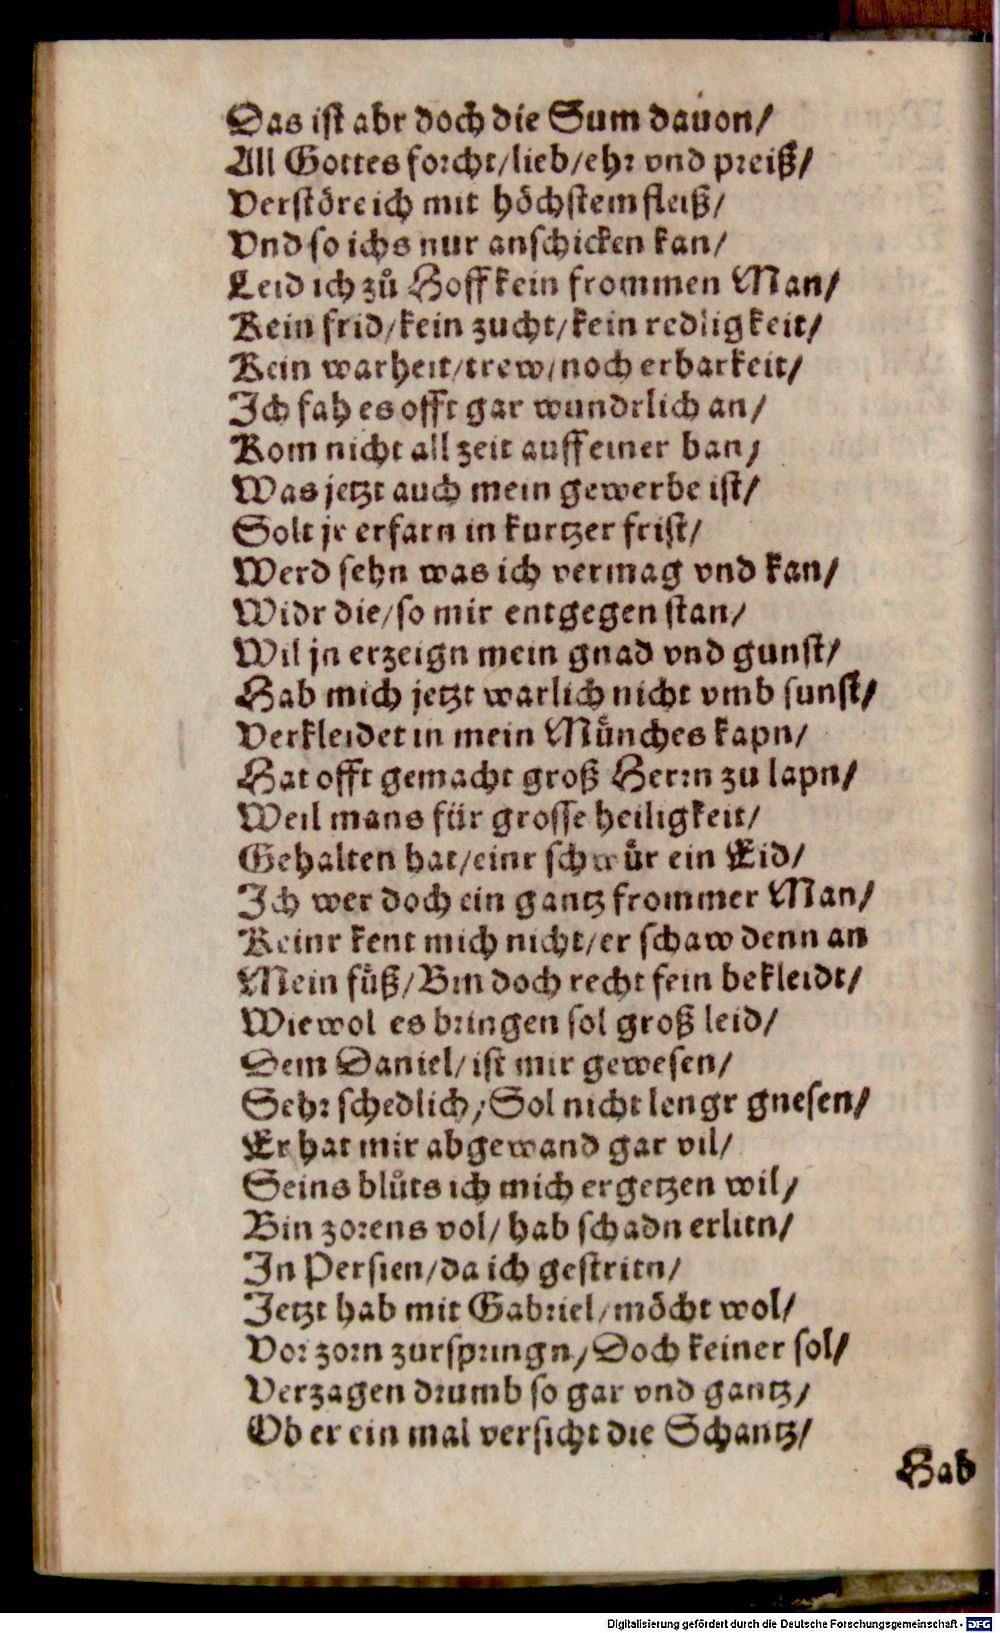 Das ist abr doch die Sum dauon/
All Gottes forcht/lieb/ehr vnd preiß/
Verstöre ich mit höchstem fleiß/
Vnd so ichs nur anschicken kan/
Leid ich zů Hoff kein frommen Man/
Kein frid/kein zucht/kein redligkeit/
Kein warheit/trew/noch erbarkeit/
Ich fah es offt gar wundrlich an/
Kom nicht all zeit auff einer ban/
Was jetzt auch mein gewerbe ist/
Solt jr erfarn in kurtzer frist/
Werd sehn was ich vermag vnd kan/
Widr die/so mir entgegen stan/
Wil jn erzeign mein gnad vnd gunst/
Hab mich jetzt warlich nicht vmb sunst/
Verkleidet in mein Münches kapn/
Hat offt gemacht groß Herrn zu lapn/
Weil mans für grosse heiligkeit/
Gehalten hat/einr schwür ein Eid/
Ich wer doch ein gantz frommer Man/
Keinr kent mich nicht/er schaw denn an
Mein füß/Bin doch recht fein bekleidt/
Wiewol es bringen sol groß leid/
Dem Daniel/ist mir gewesen/
Sehr schedlich/Sol nicht lengr gnesen/
Er hat mir abgewand gar vil/
Seins blůts ich mich ergetzen wil/
Bin zorens vol/hab schadn erlitn/
In Persien/da ich gestritn/
Jetzt hab mit Gabriel/möcht wol/
Vor zorn zurspringn/Doch keiner sol/
Verzagen drumb so gar vnd gantz/
Ob er ein mal versicht die Schantz/
Hab
Digitalisierung gefördert durch die Deutsche Forschungsgemeinschaft - DFG